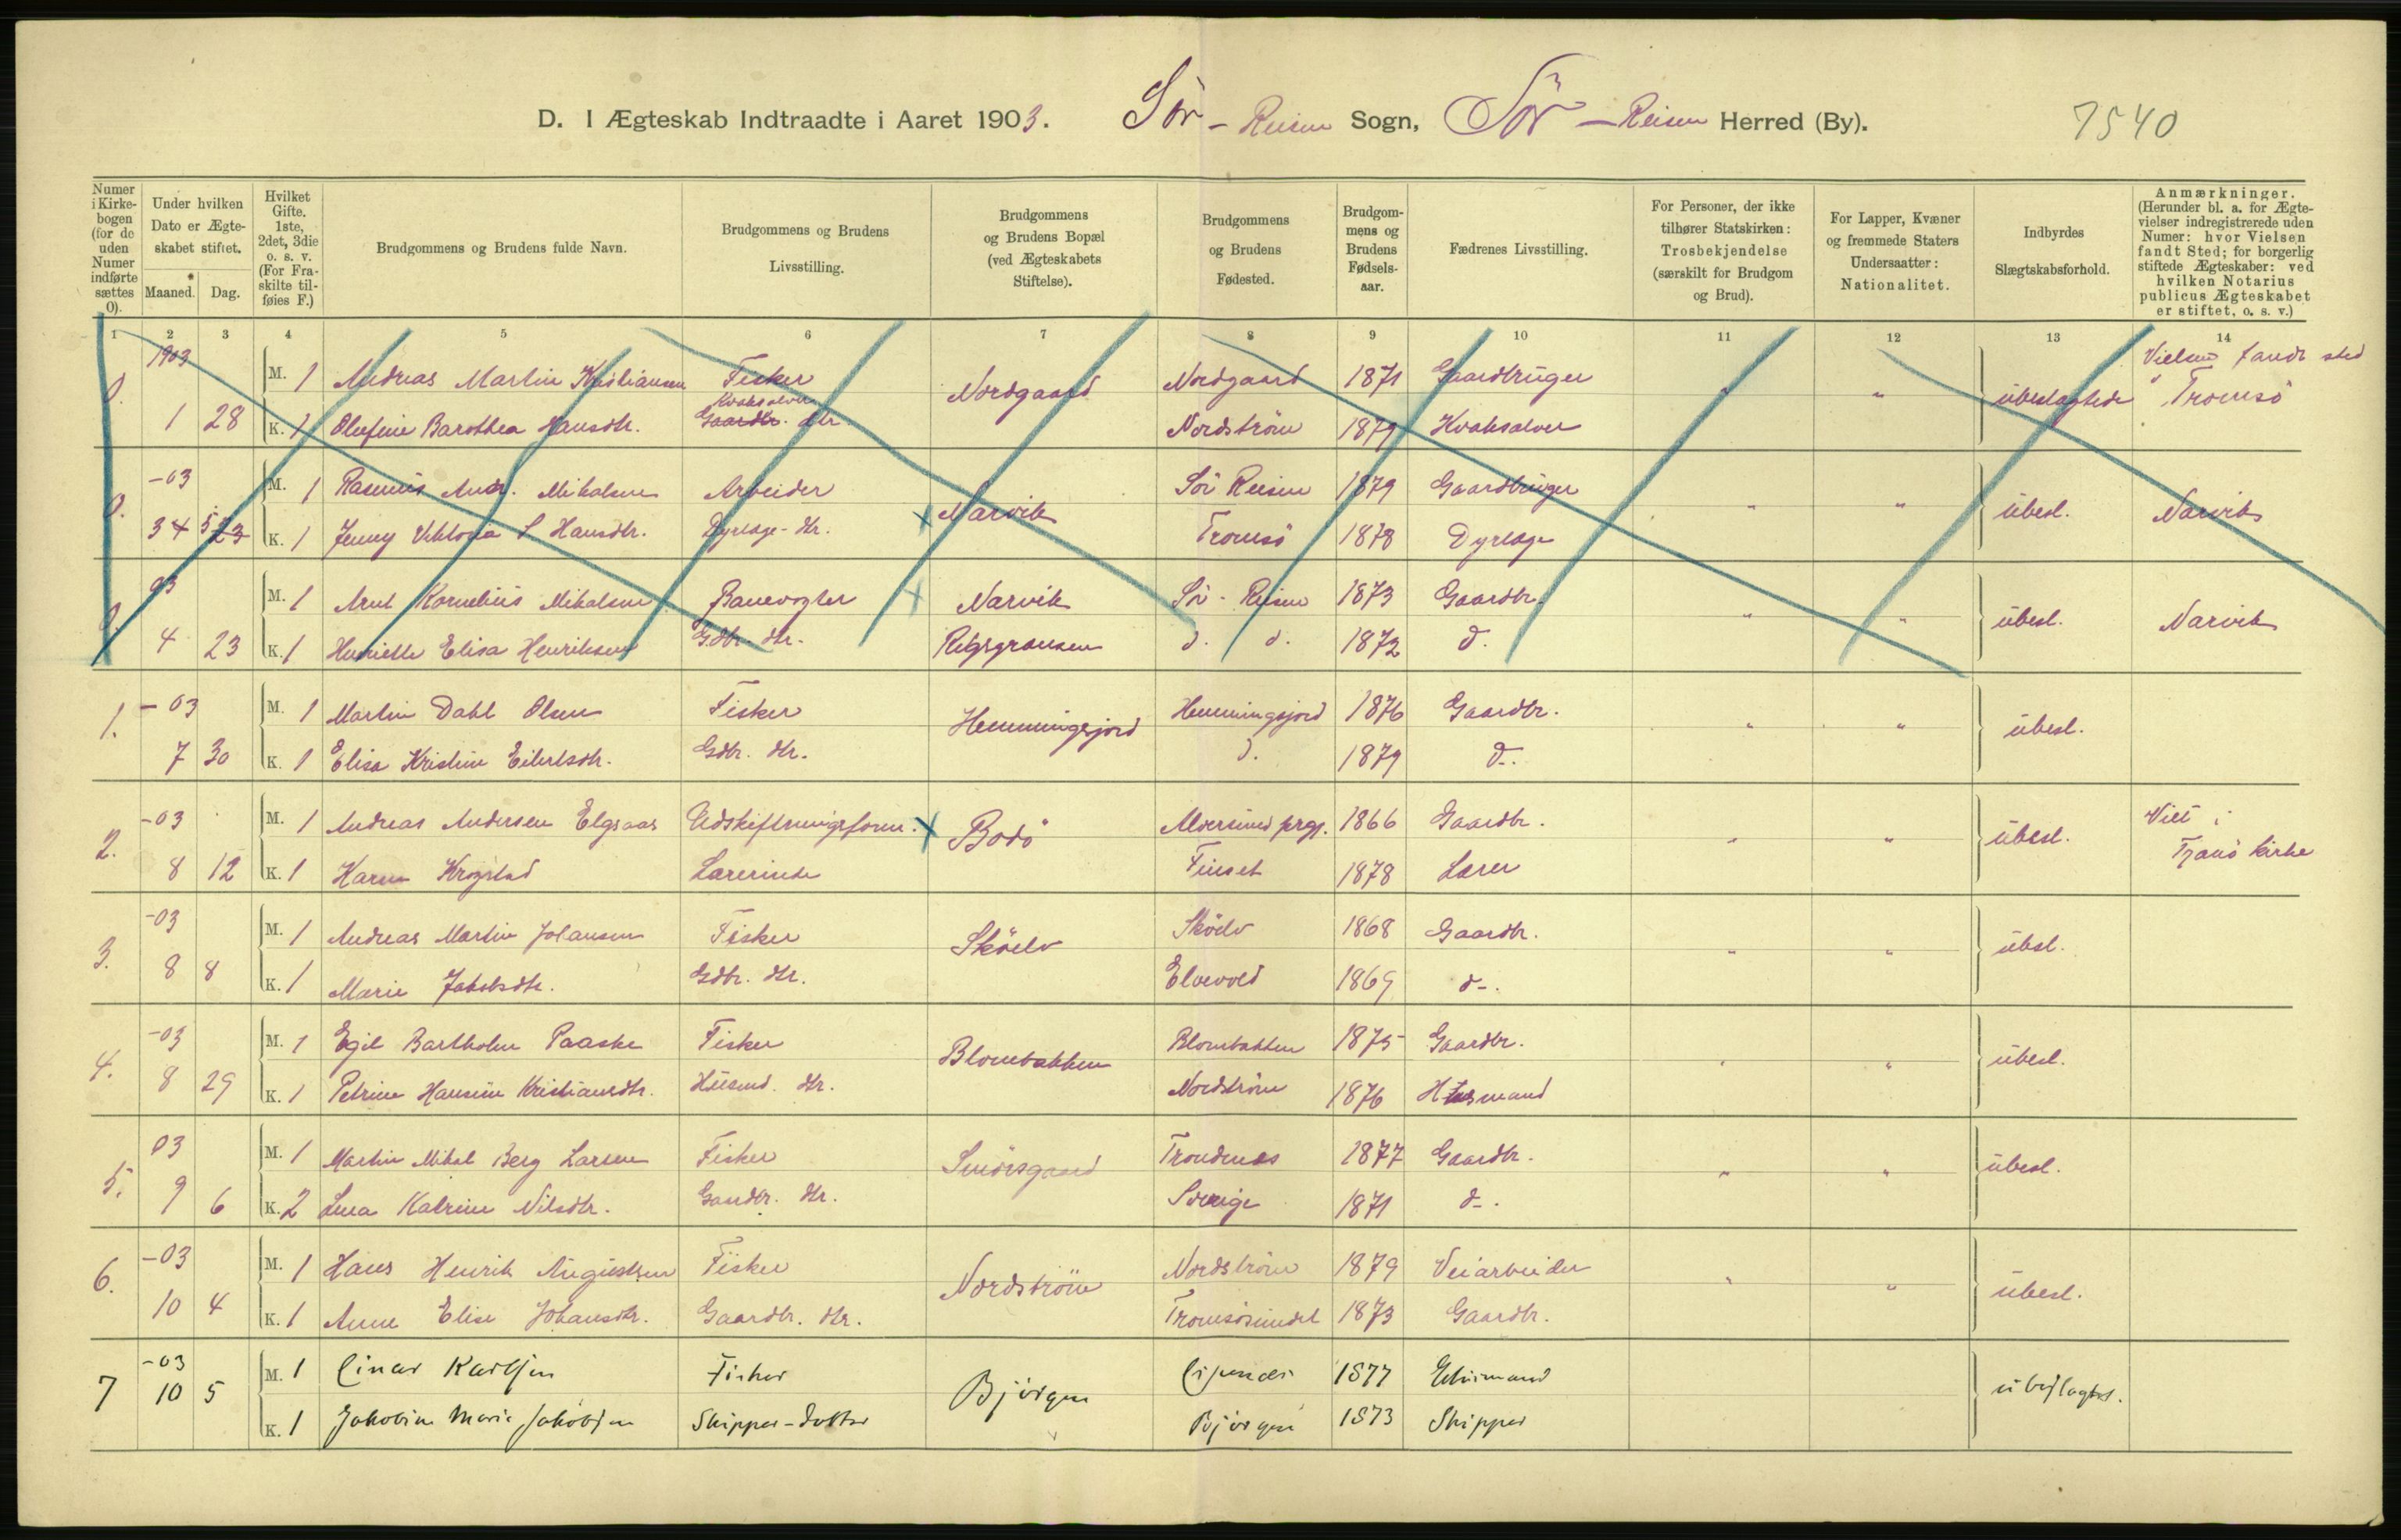 D. I Ægteskab Indtraadte i Aaret 1903. Sör - Reisen Sogn, Sör - Reisen Herred (By). 7540
Numer i Kirkebogen (for de uden Numer indførte sættes 0).
Under hvilken Dato er Ægteskabet stiftet.
Maaned. Dag.
Hvilket Gifte, 1ste, 2det, 3die o. s. v. (For Fraskilte tilføies F.)
Brudgommens og Brudens fulde Navn.
Brudgommens og Brudens Livsstilling.
Brudgommens og Brudens Bopæl (ved Ægteskabets Stiftelse).
Brudgommens og Brudens Fødested.
Brudgommens og Brudens Fødselsaar.
Fædrenes Livsstilling.
For Personer, der ikke tilhører Statskirken: Trosbekjendelse (særskilt for Brudgom og Brud).
For Lapper, Kvæner og fremmede Staters Undersaatter: Nationalitet.
Indbyrdes Slægtskabsforhold.
Anmærkninger. (Herunder bl. a. for Ægtevielser indregistrerede uden Numer: hvor Vielsen fandt Sted; for borgerlig stiftede Ægteskaber: ved hvilken Notarius publicus Ægteskabet er stiftet, o. s. v.)
1 2 3 4 5 6 7 8 9 10 11 12 13 14
0. 1903 M. 1 Andreas Martin Kristiansen Fisker Nordgaard Nordgaard 1871 Gaardbruger " " übeslægtede Vielsen fandt sted i Tromsö
1 28 K. 1 Olufine Barothea Hansdtr. Kvaksalver Gaardbr. dtr. Nordström 1879 Kvaksalver
0. -03 M. 1 Rasmus Andr. Mikalsen Arbeider Narvik Sör Reisen 1879 Gaardbruger " " übesl. Narvik
3 4 5 23 K. 1 Jenny Viktoria S Hansdtr. Dyrlæge-dtr. Tromsö 1878 Dyrlæge
0. 03 M. 1 Arnt Kornelius Mikalsen Banevogter Narvik Sör - Reisen 1873 Gaardbr. " " übesl. Narvik
4 23 K. 1 Henriette Elisa Henriksen Gdbr. dtr. Rigsgrænsen d. d. 1872 d.
1. -03 M. 1 Martin Dahl Olsen Fisker Hemmingsjord Hemmingsjord 1876 Gaardbr. " " übesl.
7 30 K. 1 Elisa Kristine Eilertsdtr. Gdbr. dtr. d. 1879 d-.
2. -03 M. 1 Andreas Andersen Elgsaas Udskiftningsform. Bodö Aldersund prgj. 1866 Gaardbr. " " übesl. Viet i Tranö kirke
8 12 K. 1 Karen Krogstad Lærerinde Finset 1878 Lærer
3. -03 M. 1 Andreas Martin Johansen Fisker Sköelv Sköelv 1868 Gaardbr. " " übsl.
8 8 K. 1 Marie Jakobsdtr. Gdbr. dtr. Elvevold 1869 d-.
4. -03 M. 1 Egil Bartholm Paaske Fisker Blombakken Blombakken 1875 Gaardbr. " " übesl.
8 29 K. 1 Petrine Hansine Kristiansdtr. Husmd. dtr. Nordström 1876 Husmand
5. 03 M. 1 Martin Mikal Berg Larsen Fisker Smörsgaard Trondenes 1877 Gaardbr. " " übesl.
9 6 K. 2 Lena Katrine Nilsdtr. Gaardbr. dtr. Sverige 1871 d-.
6. -03 M. 1 Hans Henrik Augustsen Fisker Nordström Nordström 1879 Veiarbeider " " übesl.
10 4 K. 1 Anne Elise Johansdtr. Gaardbr. dtr. Tromsösundet 1873 Gaardbr.
7 -03 M. 1 Einar Karlsen Fisker Björgen 1877 ubeslægtet.
10 5 K. 1 Jakobine Marie Jakobsen Skipper-datter Björgen 1873 Skipper